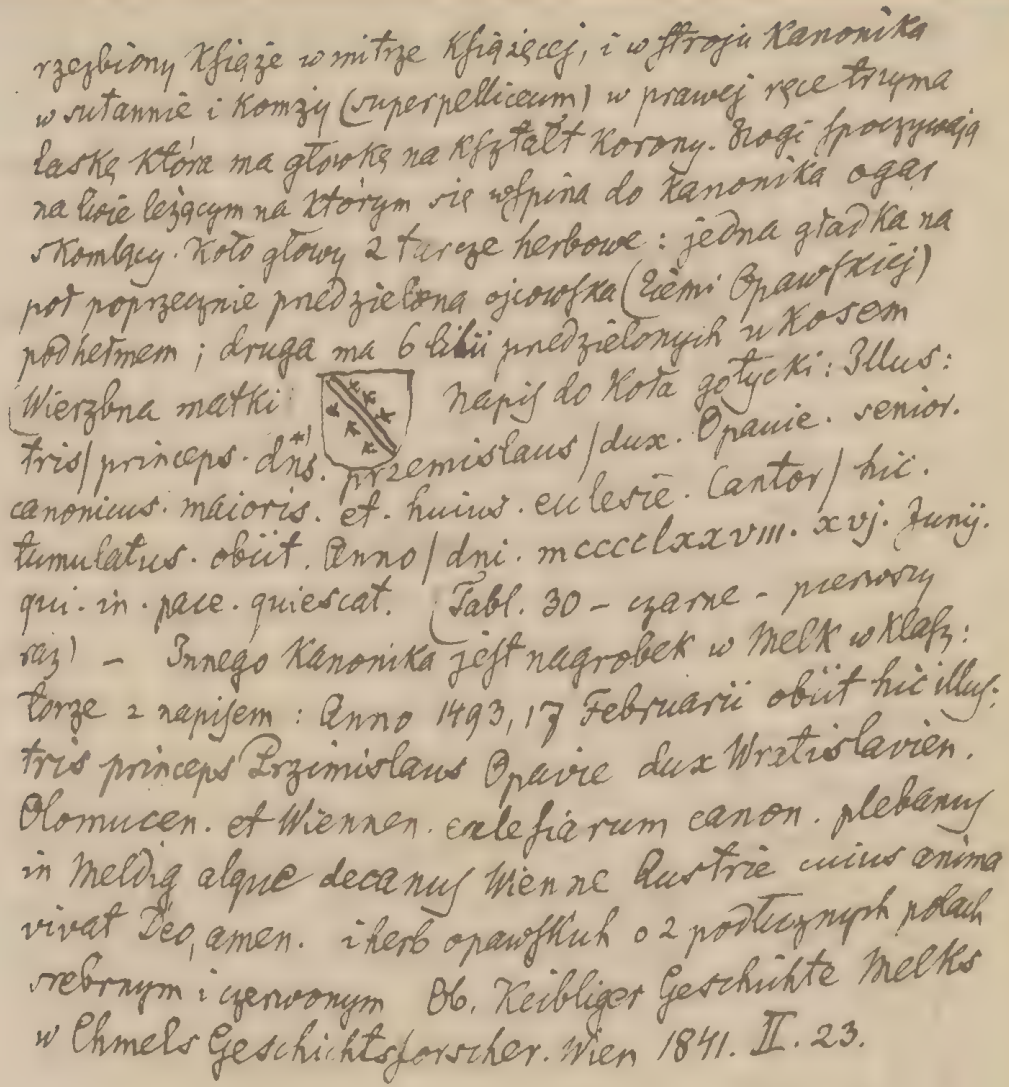 rzezbiony Xsiąże w mitrze Xsiążęcej, i w stroju Kanonika
w sutannie i Komży (superpelliceum) w prawej ręce trzyma
laskę która ma głowkę na Kształt Korony. Nogi spoczywają
na lwie leżącym na którym się wspina do kanonika ogar
skomlący. Koło głowy 2 tarcze herbowe: jedna gładka na
poł poprzecznie przedzielona ojcowska (ziemi Opawskiej)
pod hełmem; druga ma 6 lilii przedzielonych w Kosem
(Wierzbna matki Napis do Koła gotycki: Illus:
tris/princeps. dns.*) przemislaus/dux. Opauie. senior.
canonicus. maioris. et. huius. ecclesie. Cantor/hic.
tumulatus. obiit. Anno/dni. mcccclxxviii. xvj. Junij.
qui. in. pace. quiescat. (Tabl. 30 - czarne - pierwszy
raz) - Innego Kanonika jest nagrobek w Melk w Klasz:
torze z napisem: Anno 1493, 17 Februarii obiit hic illus:
tris princeps Przimislaus Opavie dux Wratislavien.
Olomucen. et Wiennen. ecclesiarum canon. plebanus
in Meldig atque decanus Wienne Austrie cuius anima
vivat Deo, amen. i herb opawskich o 2 podłużnych polach
srebrnym i czerwonym Ob. Keibliger Geschichte Melks
w Chmels Geschichtsforscher. Wien 1841. II. 23.